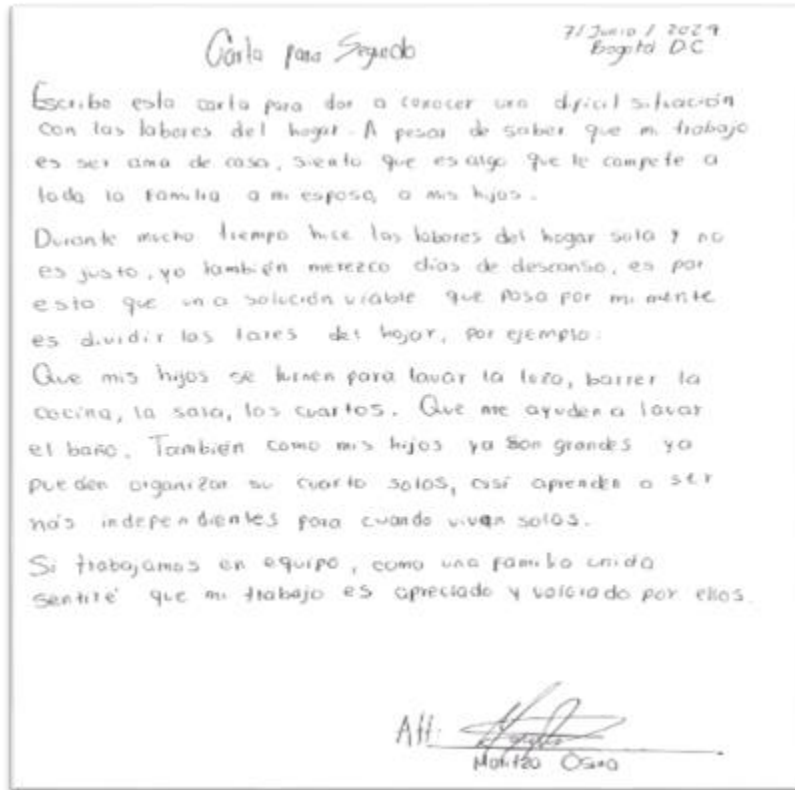 Carta para Segundo
7/Junio/2024
Bogotá DC
Escribo esta carta para dar a conocer una dificil situación
con las labores del hogar. A pesar de saber que mi trabajo
es ser ama de casa, siento que es algo que le compete a
toda la familia a mi esposo, a mis hijos.
Durante mucho tiempo hice las labores del hogar sola y no
es justo, yo también merezco días de descanso, es por
esto que una solución viable que pasa por mi mente
es dividir las tares del hojar, por ejemplo:
Que mis hijos se turnen para lavar la loza, barrer la
cocina, la sala, los cuartos. Que me ayuden a lavar
el baño. También como mis hijos ya son grandes ya
pueden organizar su cuarto solos, así aprenden a ser
más independientes para cuando vivan solos.
Si trabajamos en equipo, como una familia unida
sentiré que mi trabajo es apreciado y valorado por ellos.
Att: